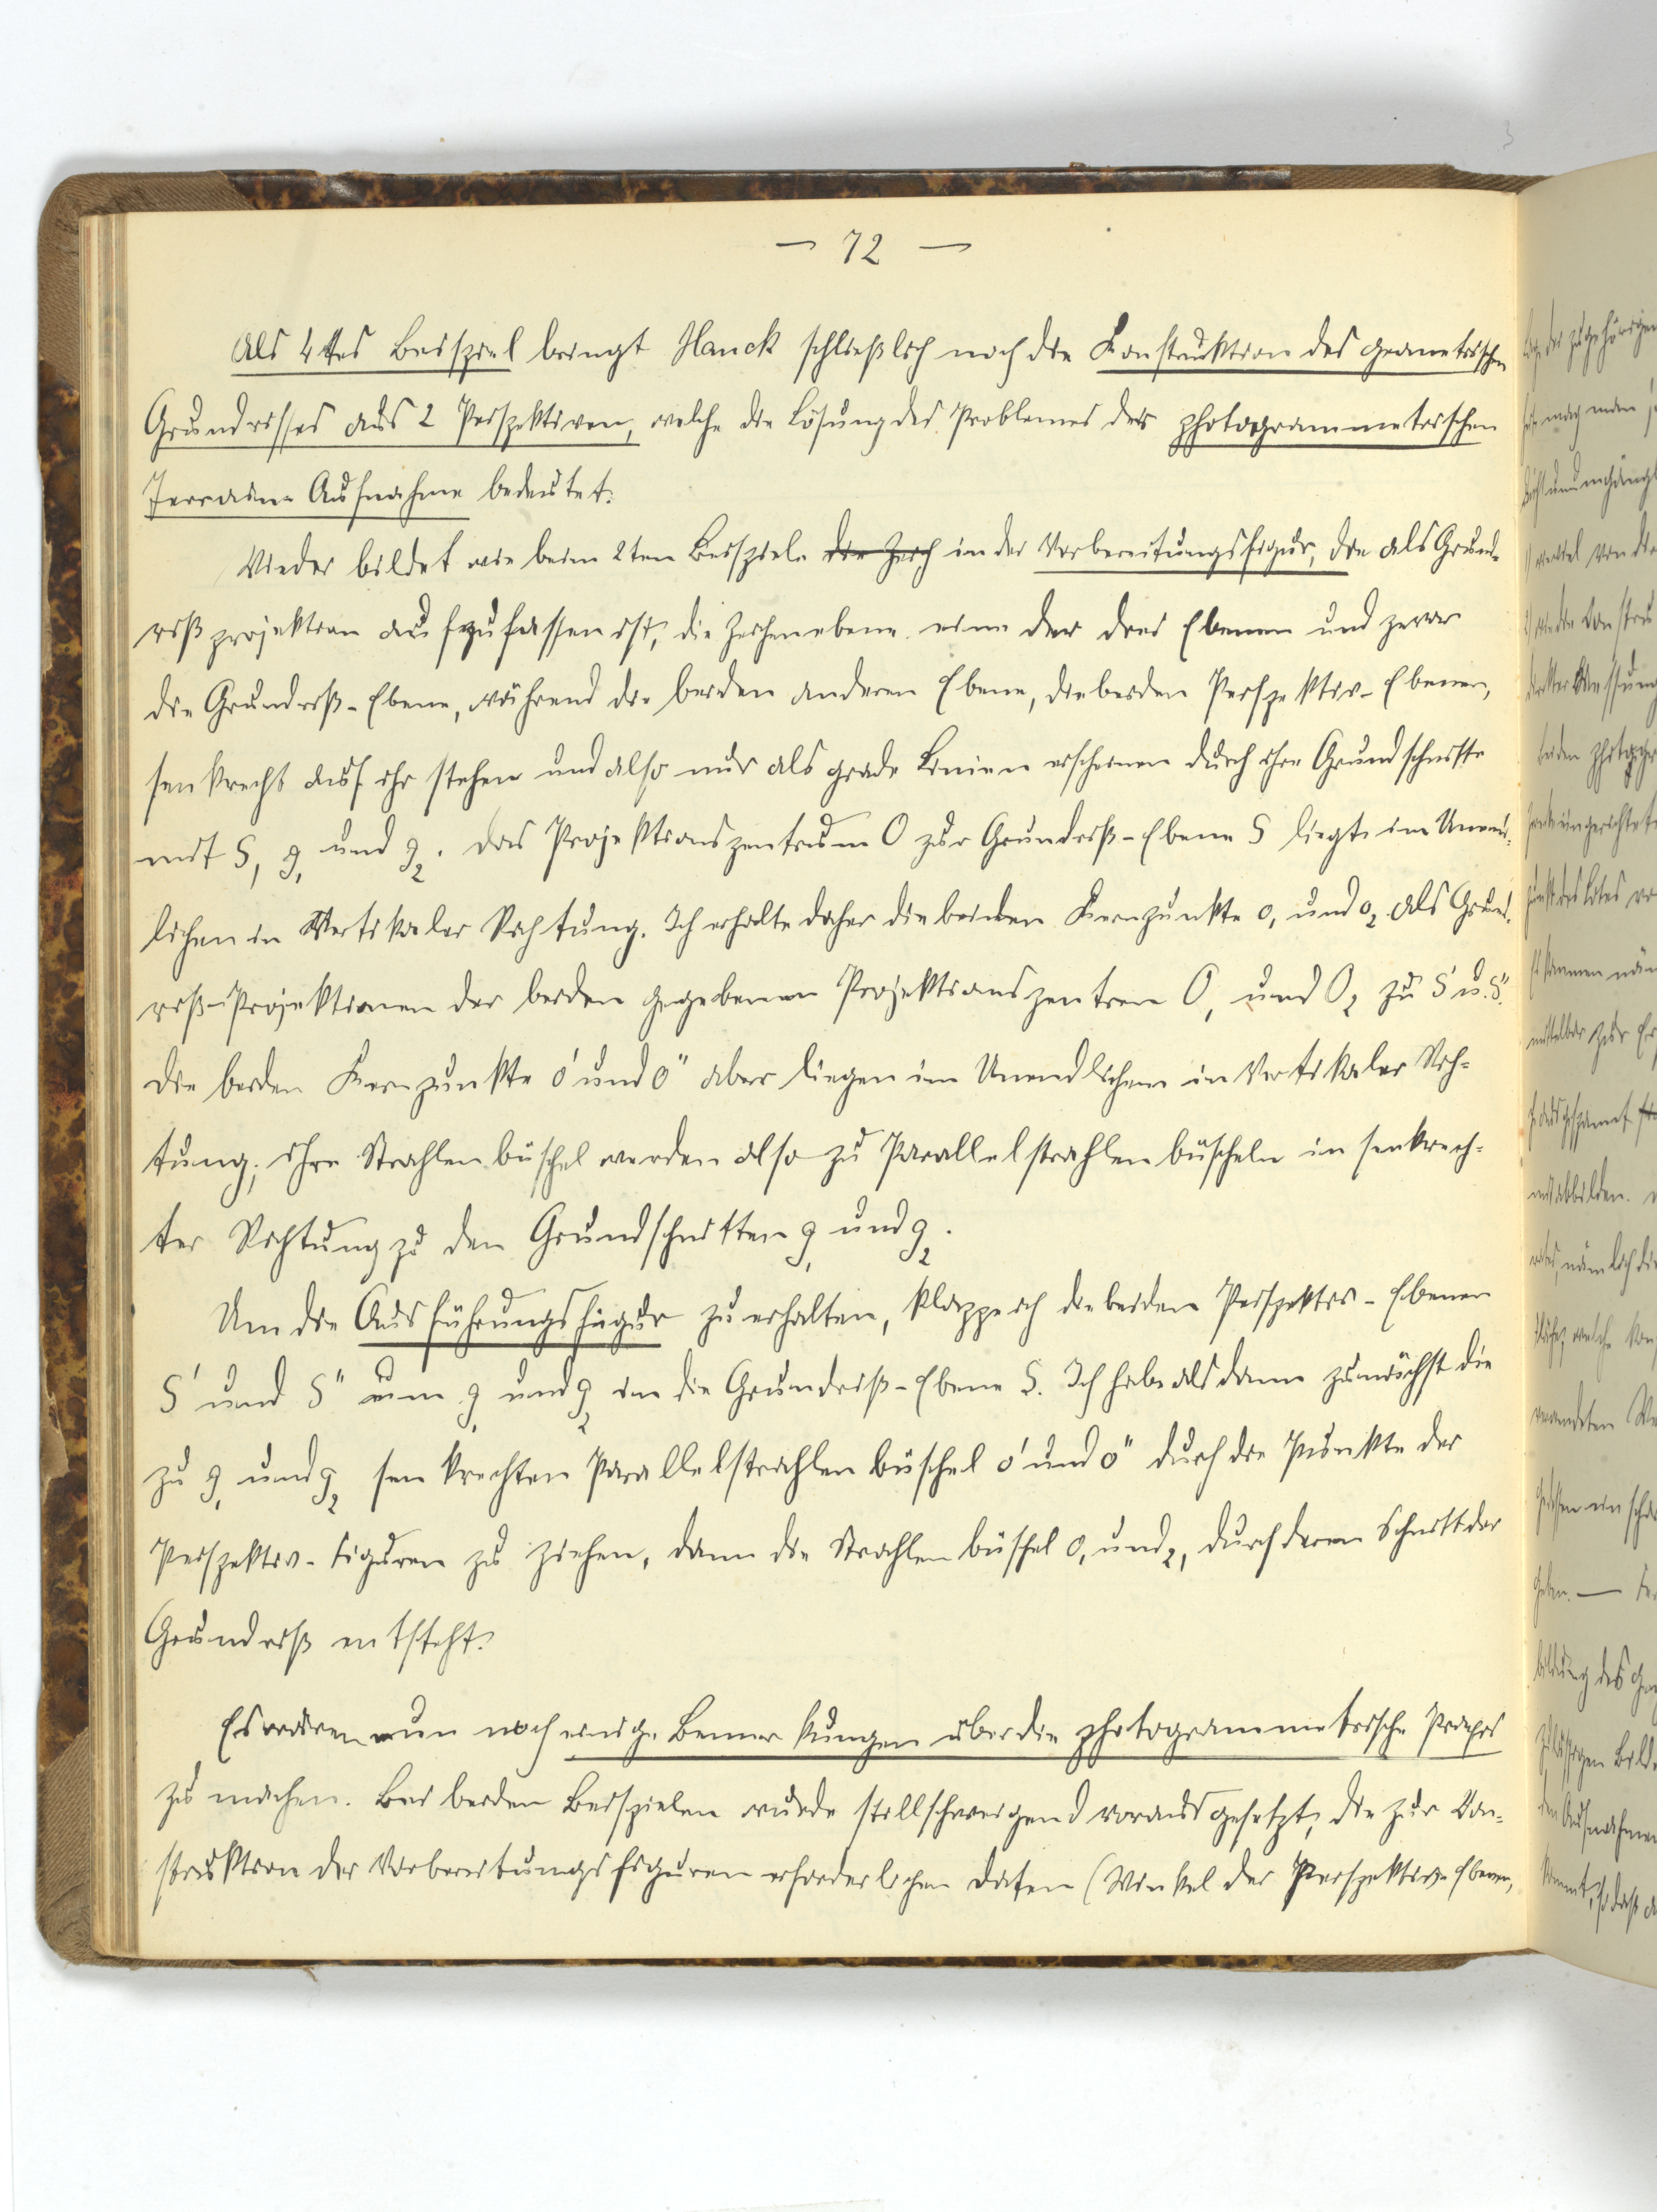 — 72 —
Als 4tes Beispiel bringt Hauck schließlich noch die Konstruktion des geometrischen
Grundrisses aus 2 Perspektiven, welche die Lösung des Problemes der photogrammetrischen
Terrain-Aufnahme bedeutet.
Wieder bildet wie beim 2ten Beispiele die Zeich in der Vorbereitungsfigur, die als Grund-
rißprojektion aufzufassen ist, die Zeichenebene eine der drei Ebenen und zwar
die Grundriß-Ebene, während die beiden anderen Ebene, die beiden Perspektiv-Ebenen,
senkrecht auf ihr stehen und also nur als grade Linien erscheinen durch ihre Grundschnitte
mit S, g₁ und g₂. Das Projektionszentrum O zur Grundriß-Ebene S liegt im Unend-
lichen in Vertikaler Richtung. Ich erhalte daher die beiden Kernpunkte o₁ und o₂ als Grund-
riß-Projektionen der beiden gegebenen Projektionszentren O₁ und O₂ zu S' u. S".
Die beiden Kernpunkte o' und o" aber liegen im Unendlichen in Vertikaler Rich-
tung, ihre Strahlenbüschel werden also zu Parallelstrahlenbüscheln in senkrech-
ter Richtung zu den Grundschnitten g₁ und g₂.
Um die Ausführungsfigur zu erhalten, klappe ich die beiden Perspektiv-Ebenen
S' und S" um g₁ und g₂ in die Grundriß-Ebene S. Ich habe alsdann zunächst die
zu g₁ und g₂ senkrechten Parallelstrahlenbüschel o' und o" durch die Punkte der
Perspektiv-Figuren zu ziehen, dann die Strahlenbüschel o₁ und ₂, durch deren Schnitt der
Grundriß entsteht.
Es wären nun noch einige Bemerkungen über die photogrammetrische Praxis
zu machen. Bei beiden Beispielen wurde stillschweigend vorausgesetzt, die zur Kon-
struktion der Vorbereitungsfiguren erforderlichen Daten (Winkel der Perspektiv-Ebenen,